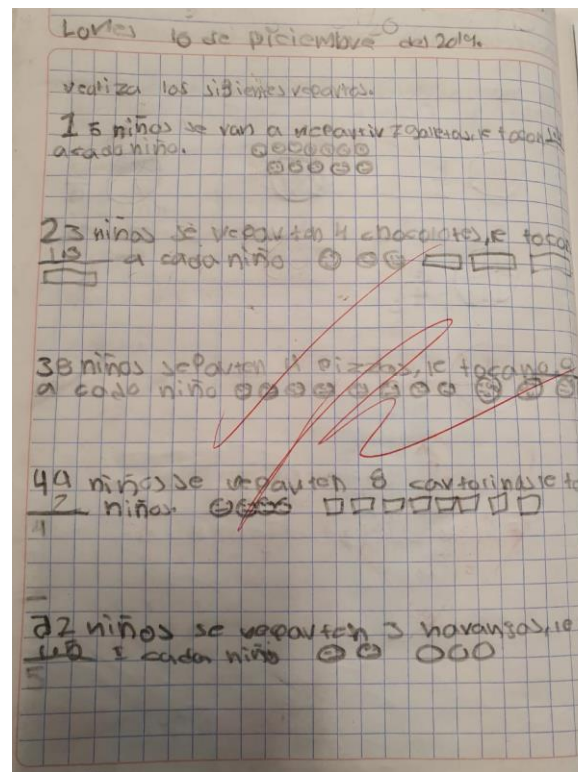 Lovles 10 de piciembve del 2019.
vealiza los sigientes vepartos.
1 5 niños se van a vepartir 7 galletas, le tocan
acada niño.
2 3 niños se vepavten 4 chocolates, le toca
a cada niño
3 8 niños seParten 4 pizzas, le tocan
a cada niño
4 4 niños se vepavten 8 cartolinas le to
2 niños.
4
2 niños se vepavten 3 navanjas, le
cada niño
5